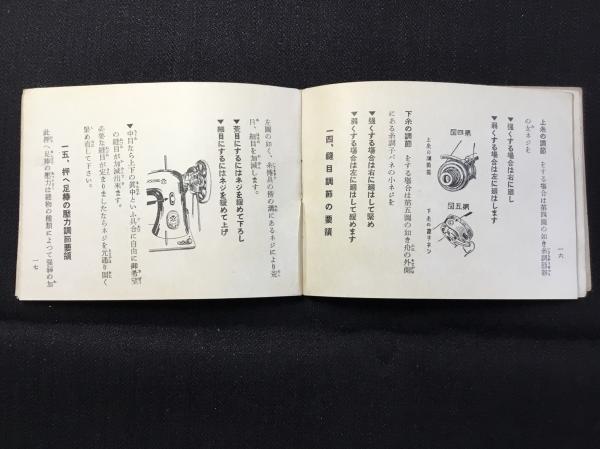 上糸の調節　をする場合は第四圖の如き糸調節器
の太ネジを
▼强くする場合は右に廻し
▼弱くする場合は左に廻はします
第四圖
上糸の調節器
第五圖
下糸の調節　をする場合は第五圖の如き舟の外側
にある糸調子バネの小ネジを
▼强くする場合は右に廻はして緊め
▼弱くする場合は左に廻はして緩めます
一四、縫目調節の要領
一六
左圖の如く、糸捲具の橫の溝にあるネジにより荒
目、細目を加減します。
▼荒目にするにはネジを緩めて下ろし
▼細目にするにはネジを緩めて上げ
▼中目なら上下の眞中といふ具合に自由に御希望
の縫目が加減出來ます。
必要な縫目が定まりましたならネジを元通り固く
緊め直して下さい。
一五、押へ足棒の壓力調節要領
此押へ足棒の壓力は縫物の種類によつて强弱の加
一七